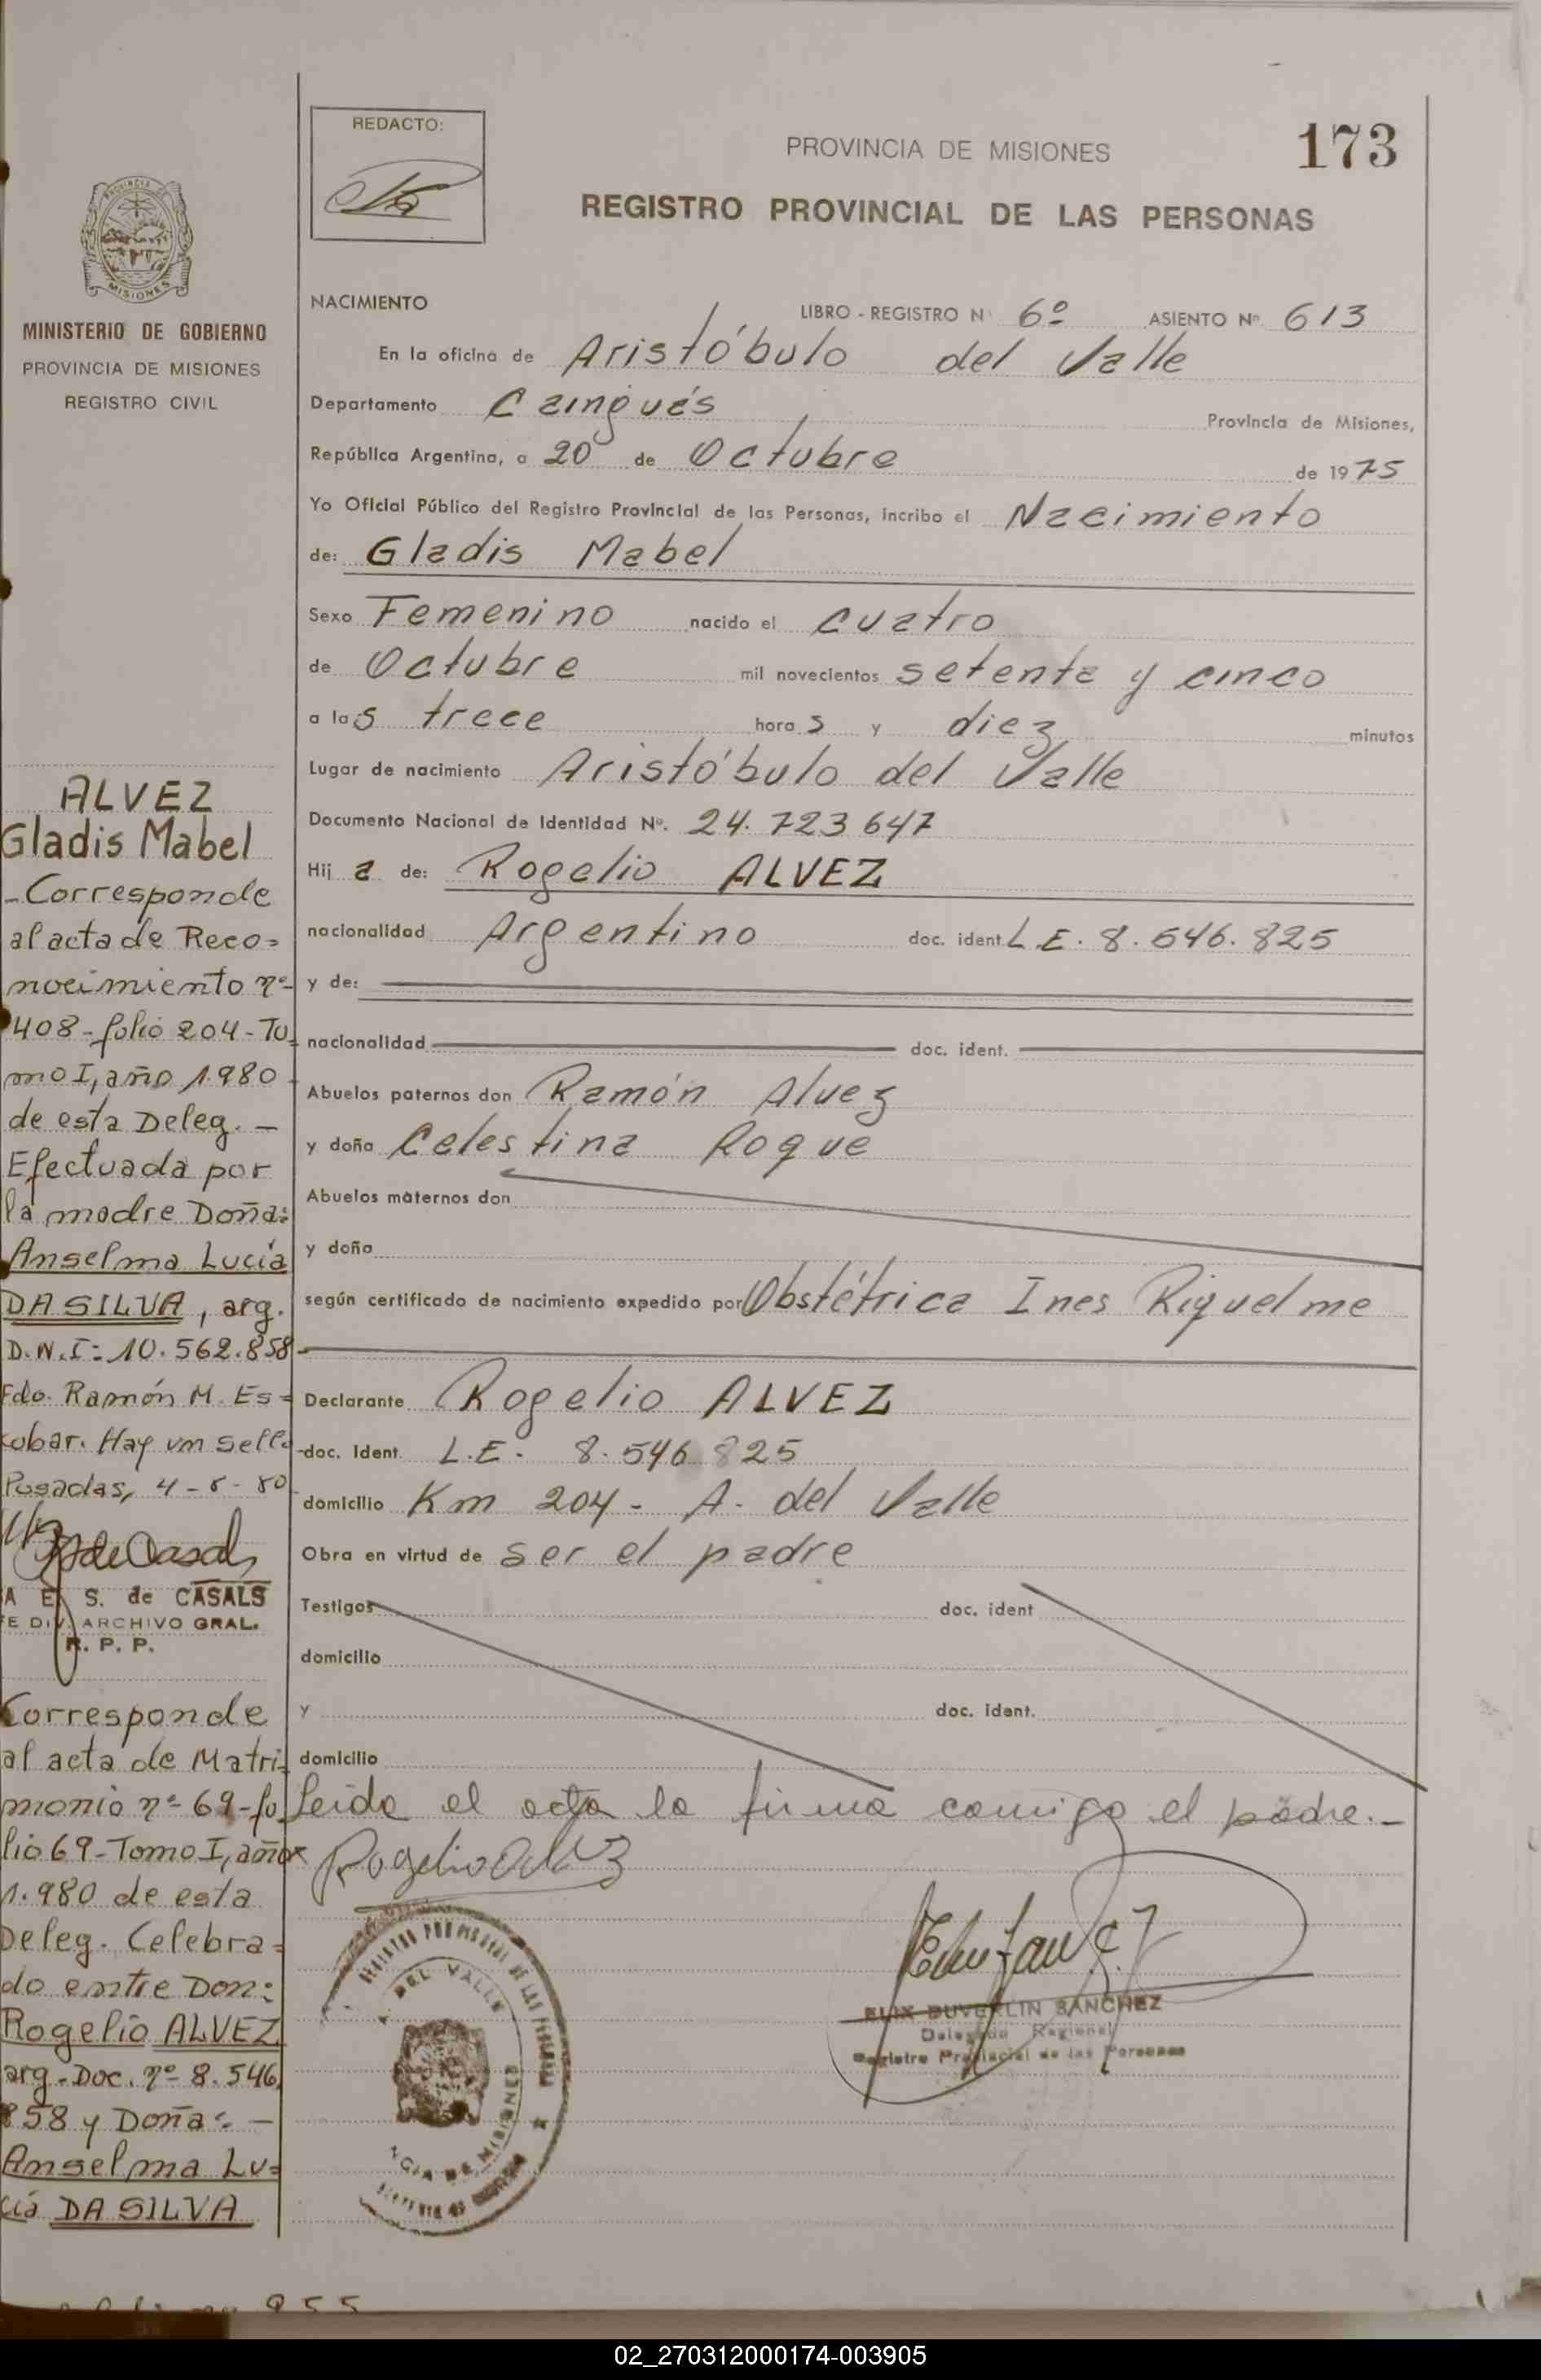 REDACTO:
PROVINCIA DE MISIONES
173
REGISTRO PROVINCIAL DE LAS PERSONAS
MISIONES
MINISTERIO DE GOBIERNO
PROVINCIA DE MISIONES
REGISTRO CIVIL
NACIMIENTO LIBRO - REGISTRO N 6º ASIENTO Nº 613
En la oficina de Aristóbulo del Valle
Departamento Cainguás Provincia de Misiones,
República Argentina, a 20 de Octubre de 1975
Yo Oficial Público del Registro Provincial de las Personas, incribo el Nacimiento
de: Gladis Mabel
Sexo Femenino nacido el cuatro
de Octubre mil novecientos setenta y cinco
a las trece horas y diez minutos
Lugar de nacimiento Aristóbulo del Valle
Documento Nacional de Identidad Nº. 24.723647
Hija de: Rogelio ALVEZ
nacionalidad Argentino doc. ident L.E. 8.546.825
y de:
nacionalidad doc. ident.
Abuelos paternos don Ramón Alvez
y doña Celestina Roque
Abuelos maternos don
y doña
según certificado de nacimiento expedido por Obstétrica Ines Riquelme
Declarante Rogelio ALVEZ
doc. Ident. L.E. 8.546 825
domicilio Km 204 - A. del Valle
Obra en virtud de ser el padre
Testigos doc. ident
domicilio
y doc. ident.
domicilio
Leida el acta la firma comigo el padre.-
Rogelio Alvez
ELIX DUVERLIN SANCHEZ
Delegado Regional
Registro Provincial de las Personas
DEL VALLE
ALVEZ
Gladis Mabel
-Corresponde
al acta de Reco=
nocimiento nº
408-folio 204-To
mo I, año 1.980
de esta Deleg. -
Efectuada por
la madre Doña:
Anselma Lucía
DA SILVA, arg.
D.N.I: 10.562.858
Fdo. Ramón M. Es=
cobar. Hay un sello
Posadas, 4-8-80
A E S. de CASALS
E DIV. ARCHIVO GRAL.
R. P. P.
Corresponde
al acta de Matri=
monio nº 69-fo
lio 69-Tomo I, año
1.980 de esta
Deleg. Celebra=
do entre Don:
Rogelio ALVEZ
arg-Doc. nº 8.546
858 y Doña: -
Anselma Lu=
cía DA SILVA
955
02_270312000174-003905